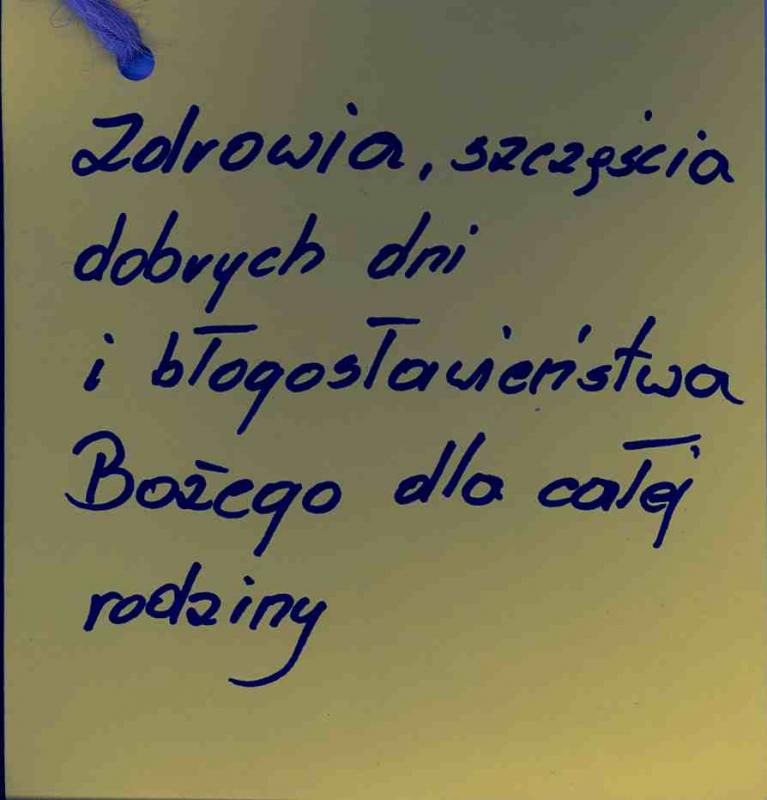 Zdrowia, szczęścia
dobrych dni
i błogosławieństwa
Bożego dla całej
rodziny